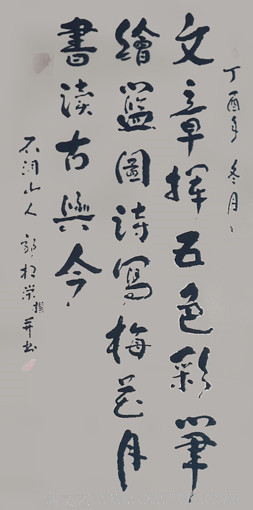 丁酉年 冬月
文章揮五色彩筆
繪藍圖詩寫梅花月
書讀古與今
石洞山人 郭相荣撰并书